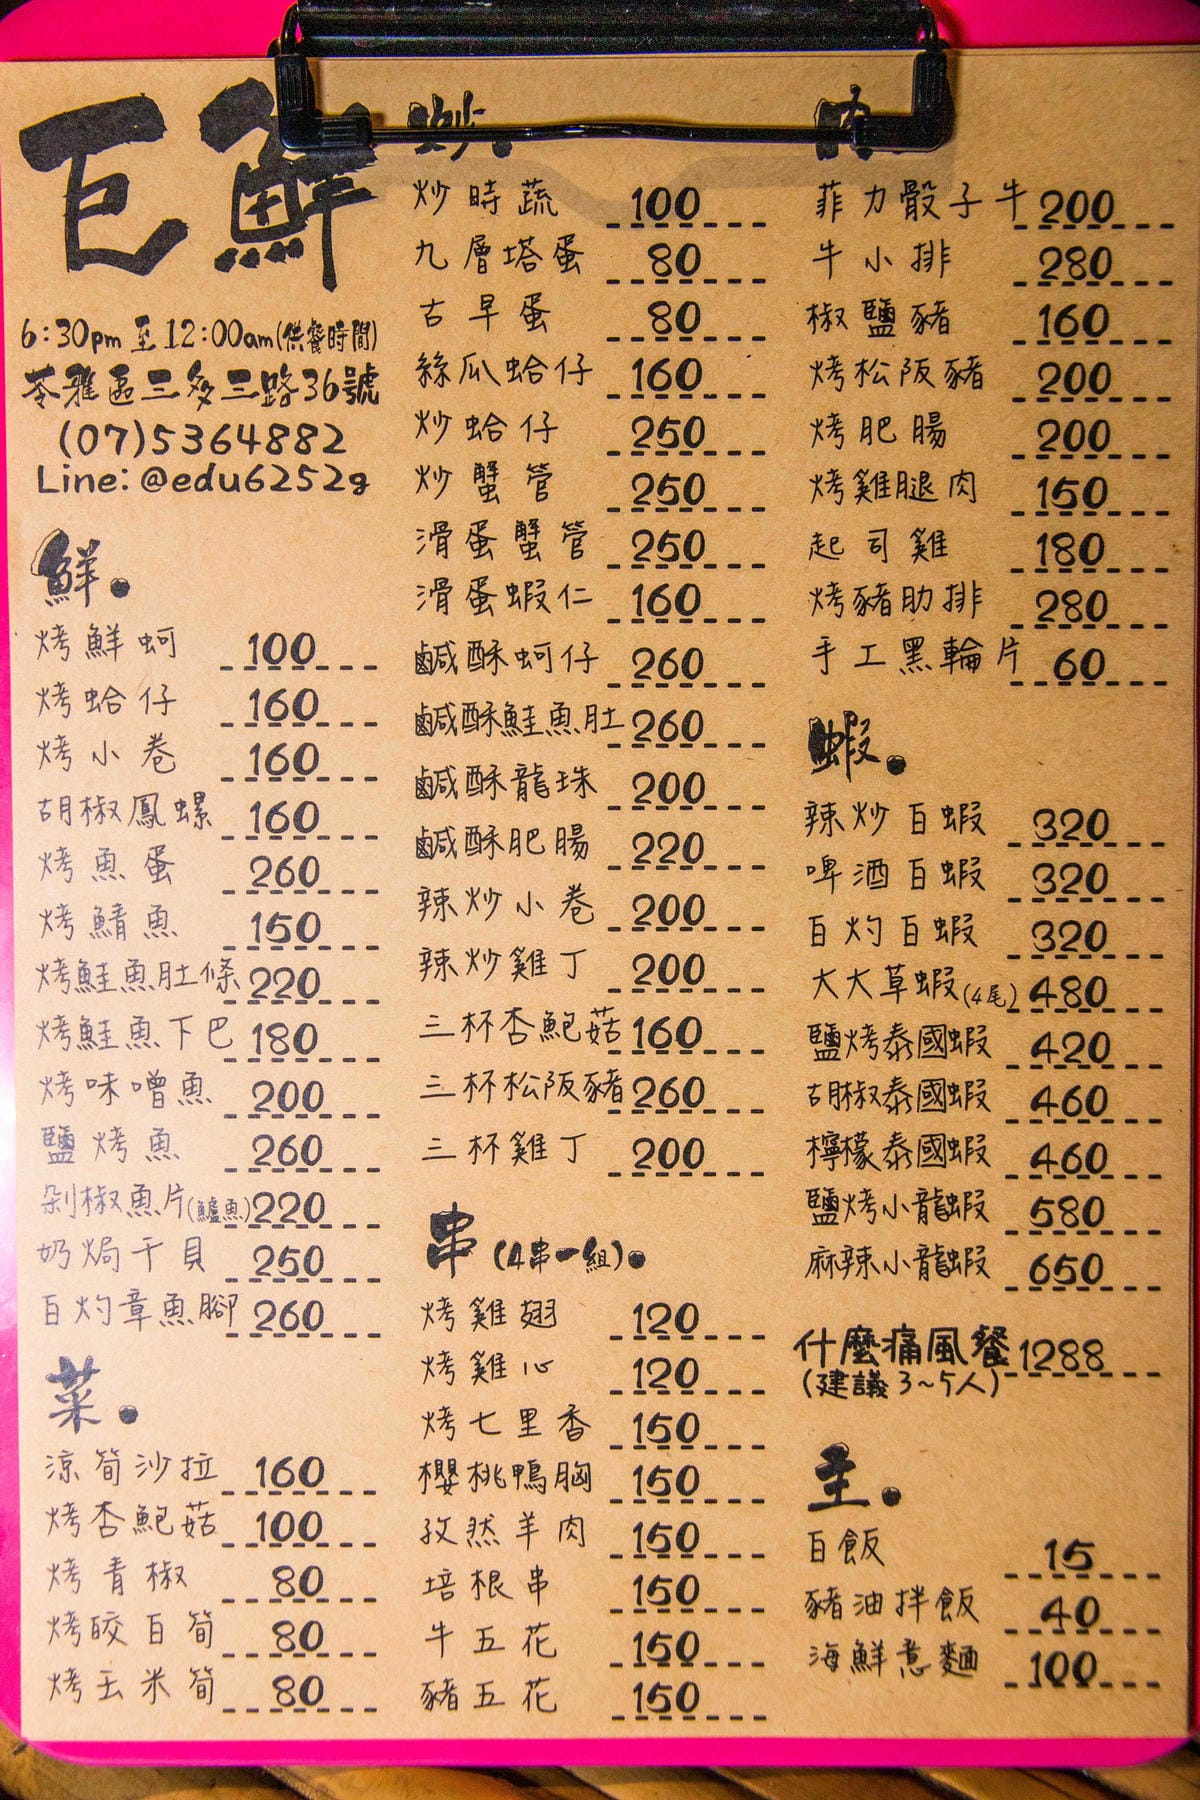 巨鮮
6:30pm 至 12:00am(供餐時間)
苓雅區三多三路36號
(07)5364882
Line: @edu6252g
鮮.
烤鮮蚵 100
烤蛤仔 160
烤小卷 160
胡椒鳳螺 160
烤魚蛋 260
烤鯖魚 150
烤鮭魚肚條 220
烤鮭魚下巴 180
烤味噌魚 200
鹽烤魚 260
剁椒魚片(鱸魚) 220
奶焗干貝 250
白灼章魚腳 260
菜.
涼筍沙拉 160
烤杏鮑菇 100
烤青椒 80
烤皎白筍 80
烤玉米筍 80
炒.
炒時蔬 100
九層塔蛋 80
古早蛋 80
絲瓜蛤仔 160
炒蛤仔 250
炒蟹管 250
滑蛋蟹管 250
滑蛋蝦仁 160
鹹酥蚵仔 260
鹹酥鮭魚肚 260
鹹酥龍珠 200
鹹酥肥腸 220
辣炒小卷 200
辣炒雞丁 200
三杯杏鮑菇 160
三杯松阪豬 260
三杯雞丁 200
串(4串一組).
烤雞翅 120
烤雞心 120
烤七里香 150
櫻桃鴨胸 150
孜然羊肉 150
培根串 150
牛五花 150
豬五花 150
肉.
菲力骰子牛 200
牛小排 280
椒鹽豬 160
烤松阪豬 200
烤肥腸 200
烤雞腿肉 150
起司雞 180
烤豬肋排 280
手工黑輪片 60
蝦.
辣炒白蝦 320
啤酒白蝦 320
白灼白蝦 320
大大草蝦(4尾) 480
鹽烤泰國蝦 420
胡椒泰國蝦 460
檸檬泰國蝦 460
鹽烤小龍蝦 580
麻辣小龍蝦 650
什麼痛風餐 1288
(建議3~5人)
主.
白飯 15
豬油拌飯 40
海鮮意麵 100